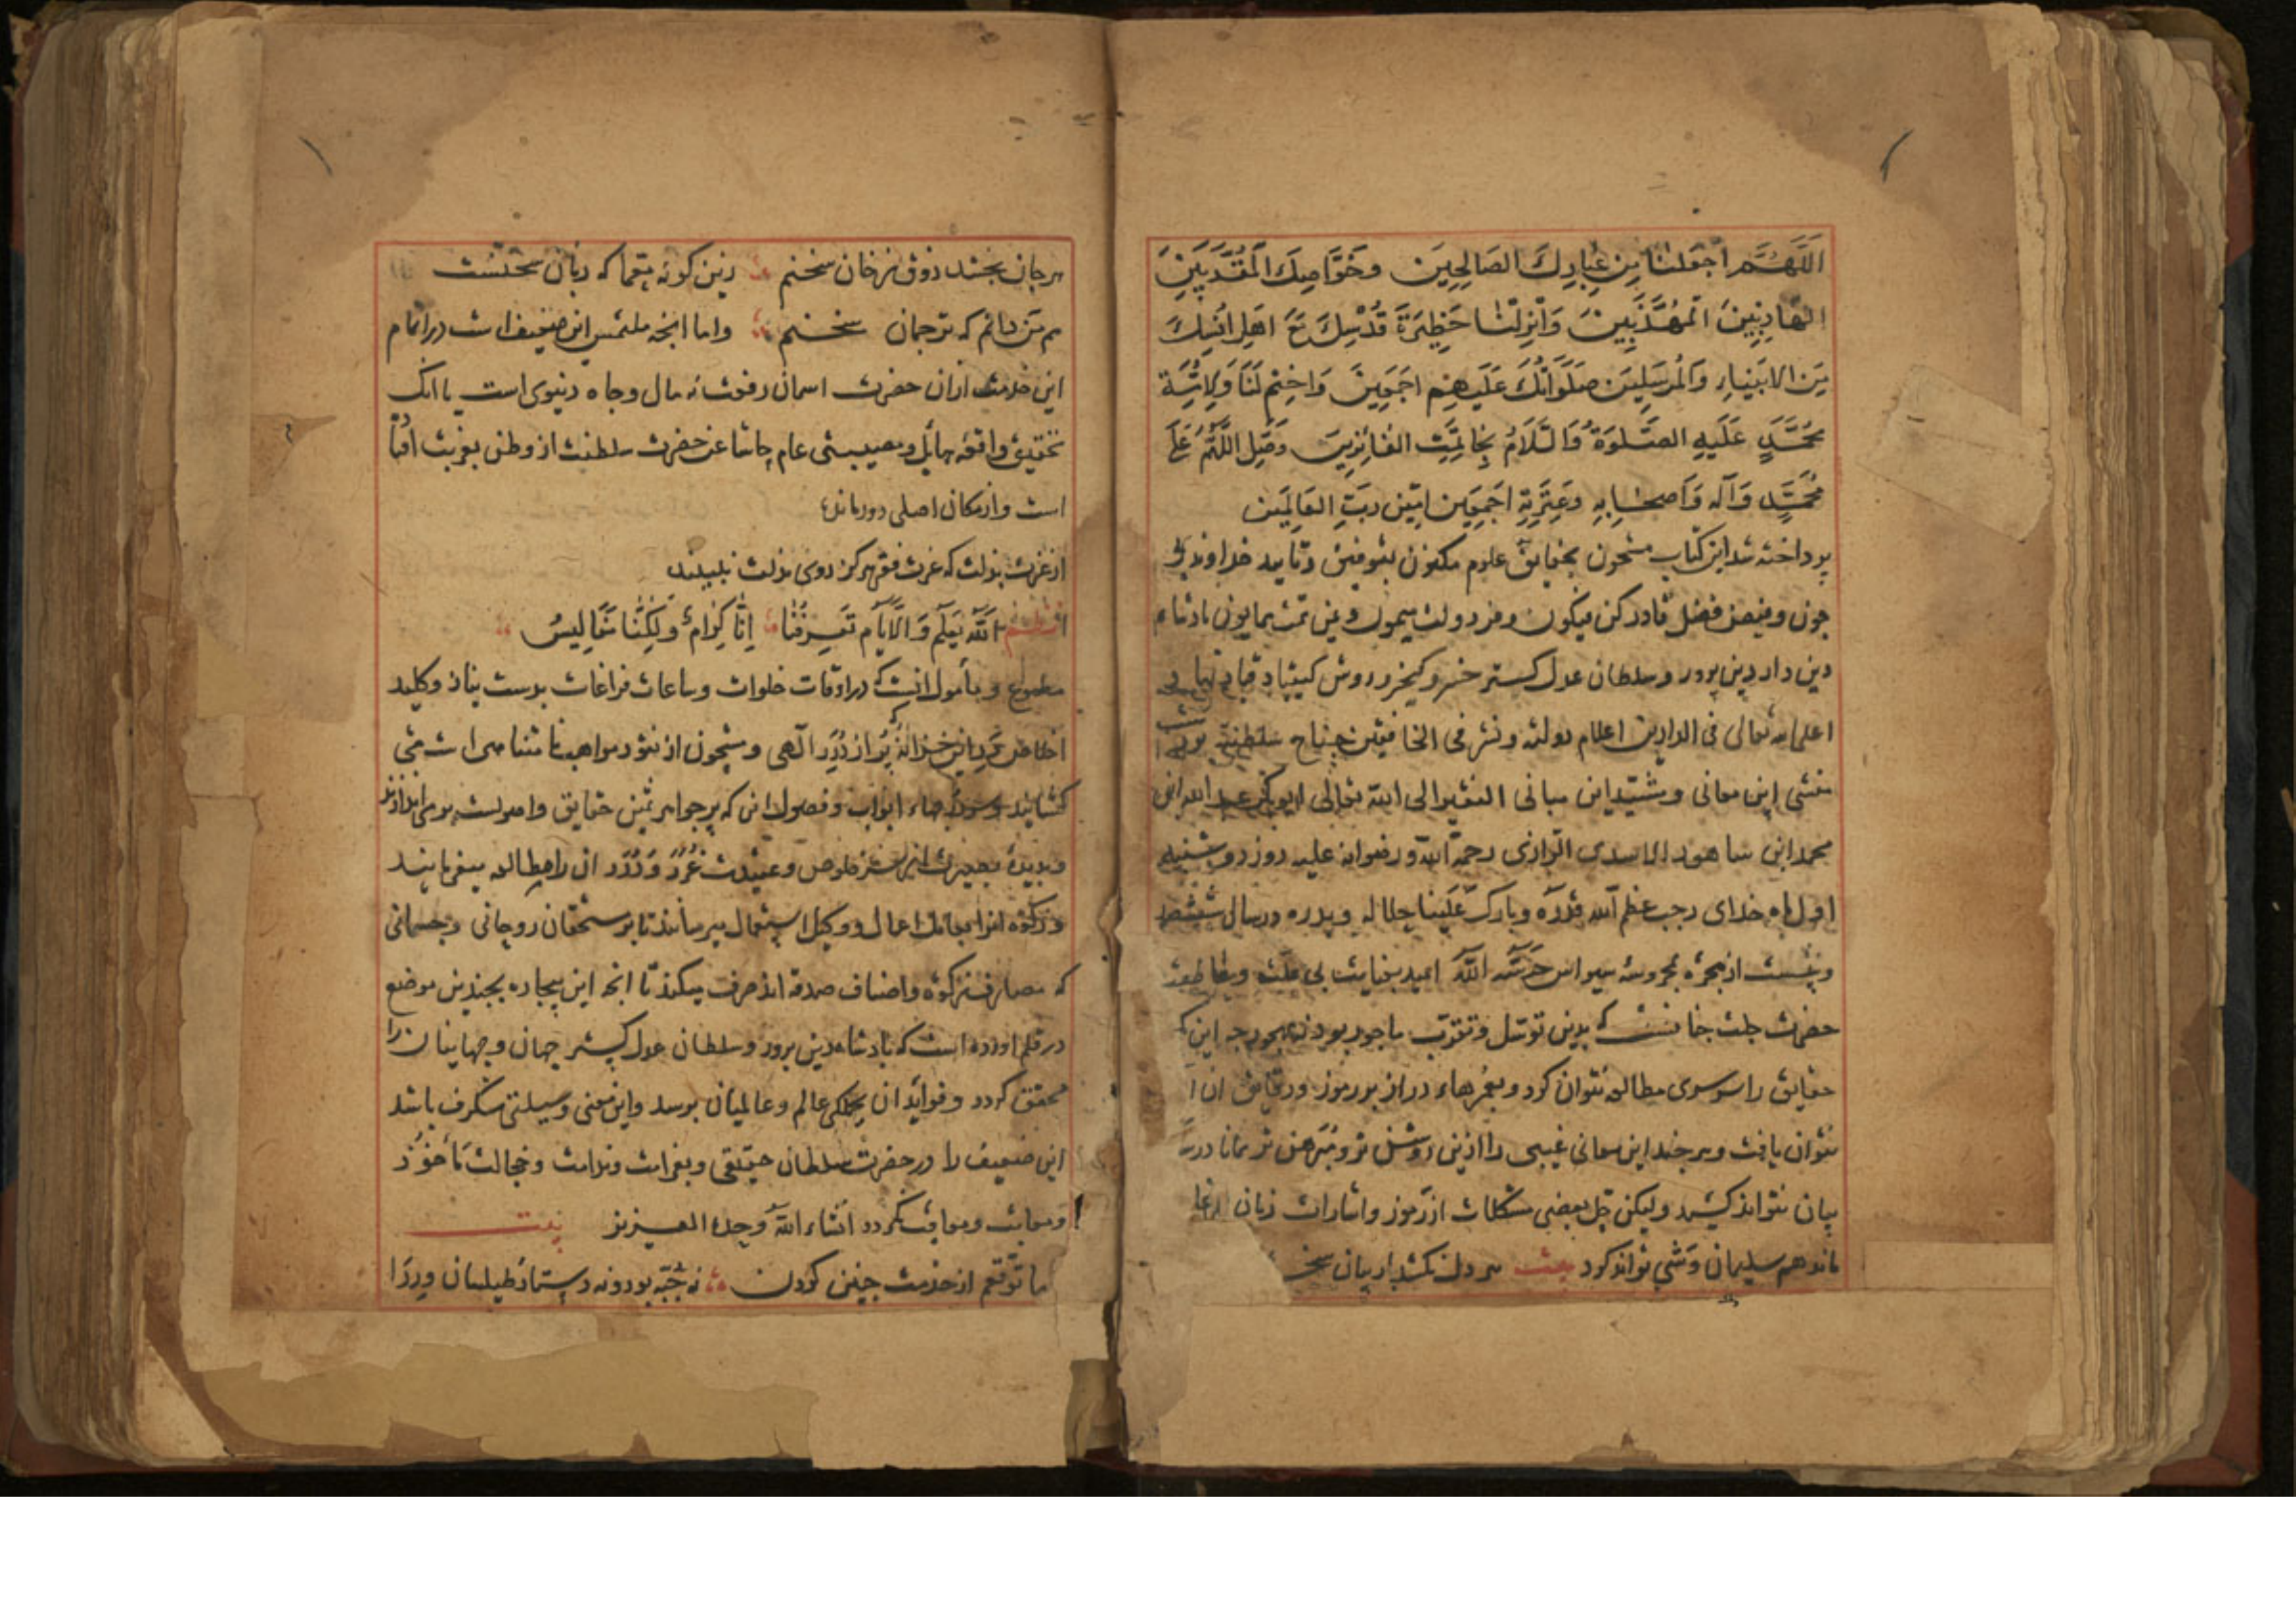 اَللَّهُمَّ اجْعَلْنَا مِنْ عِبَادِكَ الصَالِحِينَ وخَوَّاصِكَ الْمُقَرَّبِينَ
الهَادِيِينَ الْمُهَذَّبِينَ وَاَنْزِلْنَا حَظِيرَةَ قُدْسِكَ مَعَ اَهلِ اُنْسِكَ
مِنَ الانبياءِ وَالمُرسَلِينَ صَلَوَاتُكَ عَلَيهِم اجمَعِينَ وَاختِم لَنَا وَلِاُمَّةِ
مُحَمَّدٍ عَلَيهِ الصَّلوةُ وَالسَّلَامُ بِخَاتِمَتِ الفَائِزِينَ وَصَلِّ اللَّهُمَّ عَلَى
مُحَمَّدٍ وَآله وَاَصحَابِهِ وَعِترَتِهِ اَجمَعِين امِين رَبِّ العَالَمِين
پرداخته شد این کتاب مشحون بحقایق علوم مکنون بتوفیق و تایید خداوند بی
چون و فیض فضل قادر کن فیکون و فر دولت میمون و یمن همایون پادشاه
دین دار دین پرور و سلطان عدل گستر خسرو کیخسرو روش کیقباد قباد
اعلی الله تعالی فی الدارین اعلام دولته ونشر فی الخافقین جناح سلطنته بر دست
منشی این معانی و مشیّد این مبانی الفقیر الی الله تعالی ابوبکر عبد الله ابن
محمد ابن شاهور الاسدی الرازی رحمة الله ورضوانه علیه روز دوشنبه
اول ماه خدای رجب عظم الله قدره وبارک علینا جلاله وبدره در سال ششصد
وبیست از هجره بمحروسه سیواس حرسه الله امید بعنایت بی علت و عاطفت
حضرت جلت که بدین توسّل و تقرّب ماجور بود نه مهجور چه این
حقایق را سرسری مطالعه نتوان کرد و بعمرهاء دراز بر رموز و دقایق آن
نتوان یافت و هر چند این معانی غیبی را ازین روشن تر و مبرهن تر همانا در
بیان نتواند کشید ولیکن حل بعضی مشکلات از رموز و اشارات زبان
ماند هم سلیمان وشی تواند کرد بیت هر دل نکشد بار بیان
هر جان نچشد ذوق نهان سخنم زین گونه معما که زبان سخنست
هم من دانم که ترجمان سخنم واما آنچه ملتمس این ضعیف است در اتمام
این خدمت ازان حضرت اسمان رفعت نه مال و جاه دنیوی است با آنک
واقعه هایل و مصیبتی عام حاشا عن حضرت سلطنت از وطن بغربت افتاده
است و از مکان اصلی دور مانده
از عزت بذلت که عزت فقر هرگز روی مذلت نبیند
اللهُ یَعلَمُ وَالاَیّام تَعرِفُنَا اِنَّا کِرَامٌ وَلَکِنَّا مَفَالِیسُ
مطموع و مأمول آنست که در اوقات خلوات و ساعات فراغات بدست نیاز و کلید
اخلاص در این خزانه پر از دُرَر الهی و مشحون از نقود مواهب نامتناهی است می
گشایند و ابواب و فصول آن که پر جواهر ثمین حقایق و اصولست
وبدیدهٔ بصیرت از سر خلوص و عقیدت غُرَر وَ دُرَر آن را مطالعه میفرمایند
و زکوة آنرا اعمال و وکیل استعمال میرسانند تا بر مستحقان روحانی و جسمانی
که مصارف زکوة و اصناف صدقه اند صرف میکند تا آنچه این بیچاره بچندین موضع
در قلم آورده است که پادشاه دین پرور و سلطان عدل گستر جهان و جهانیان را
محقق گردد و فواید آن بجملگی عالم و عالمیان برسد و این معنی وسیلتی شگرف باشد
این ضعیف را در حضرت سلطان حقیقی و بغرامت و ندامت و خجالت مأخوذ
و معاتب و معاقب نگردد انشاء الله وحده العزیز بیت
ما توقعم از خدمت چنین کردن نه جُبّه بود و نه دستار و طیلسان و ردا